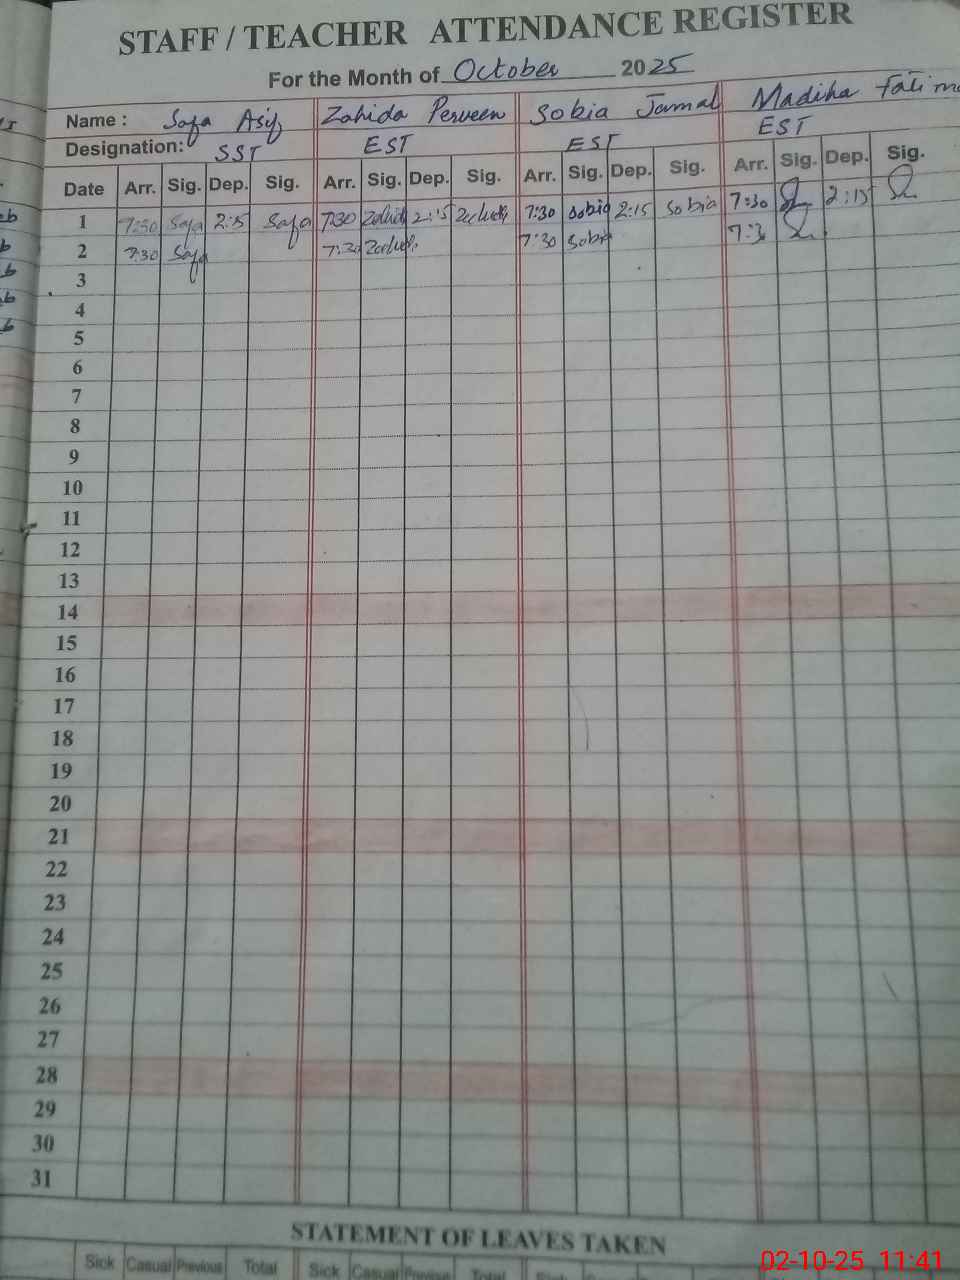 STAFF / TEACHER ATTENDANCE REGISTER
For the Month of October 2025
Name : Safa Asif Zahida Perveen Sobia Jamal Madiha Fatima
Designation: SST EST EST EST
Date Arr. Sig. Dep. Sig. Arr. Sig. Dep. Sig. Arr. Sig. Dep. Sig. Arr. Sig. Dep. Sig.
1 7:30 Safa 2:15 Safa 7:30 Zahida 2:15 7:30 Sobia 2:15 Sobia 7:30 2:15
2 7:30 Safa 7:30 7:30 Sobia 7:3
3
4
5
6
7
8
9
10
11
12
13
14
15
16
17
18
19
20
21
22
23
24
25
26
27
28
29
30
31
STATEMENT OF LEAVES TAKEN
Sick Casual Previous Total Sick Casual Previous Total Sick
02-10-25 11:41